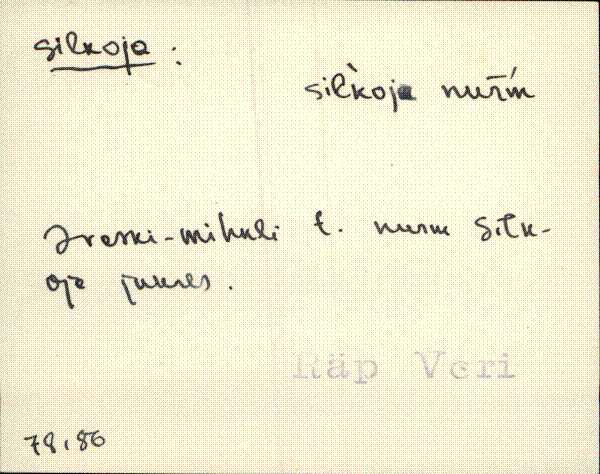 silkoja :
sil̀koja nur̄ḿ
Jreski-mihkli t. nurm Silk-
oja juures.
Räp Veri
78,86